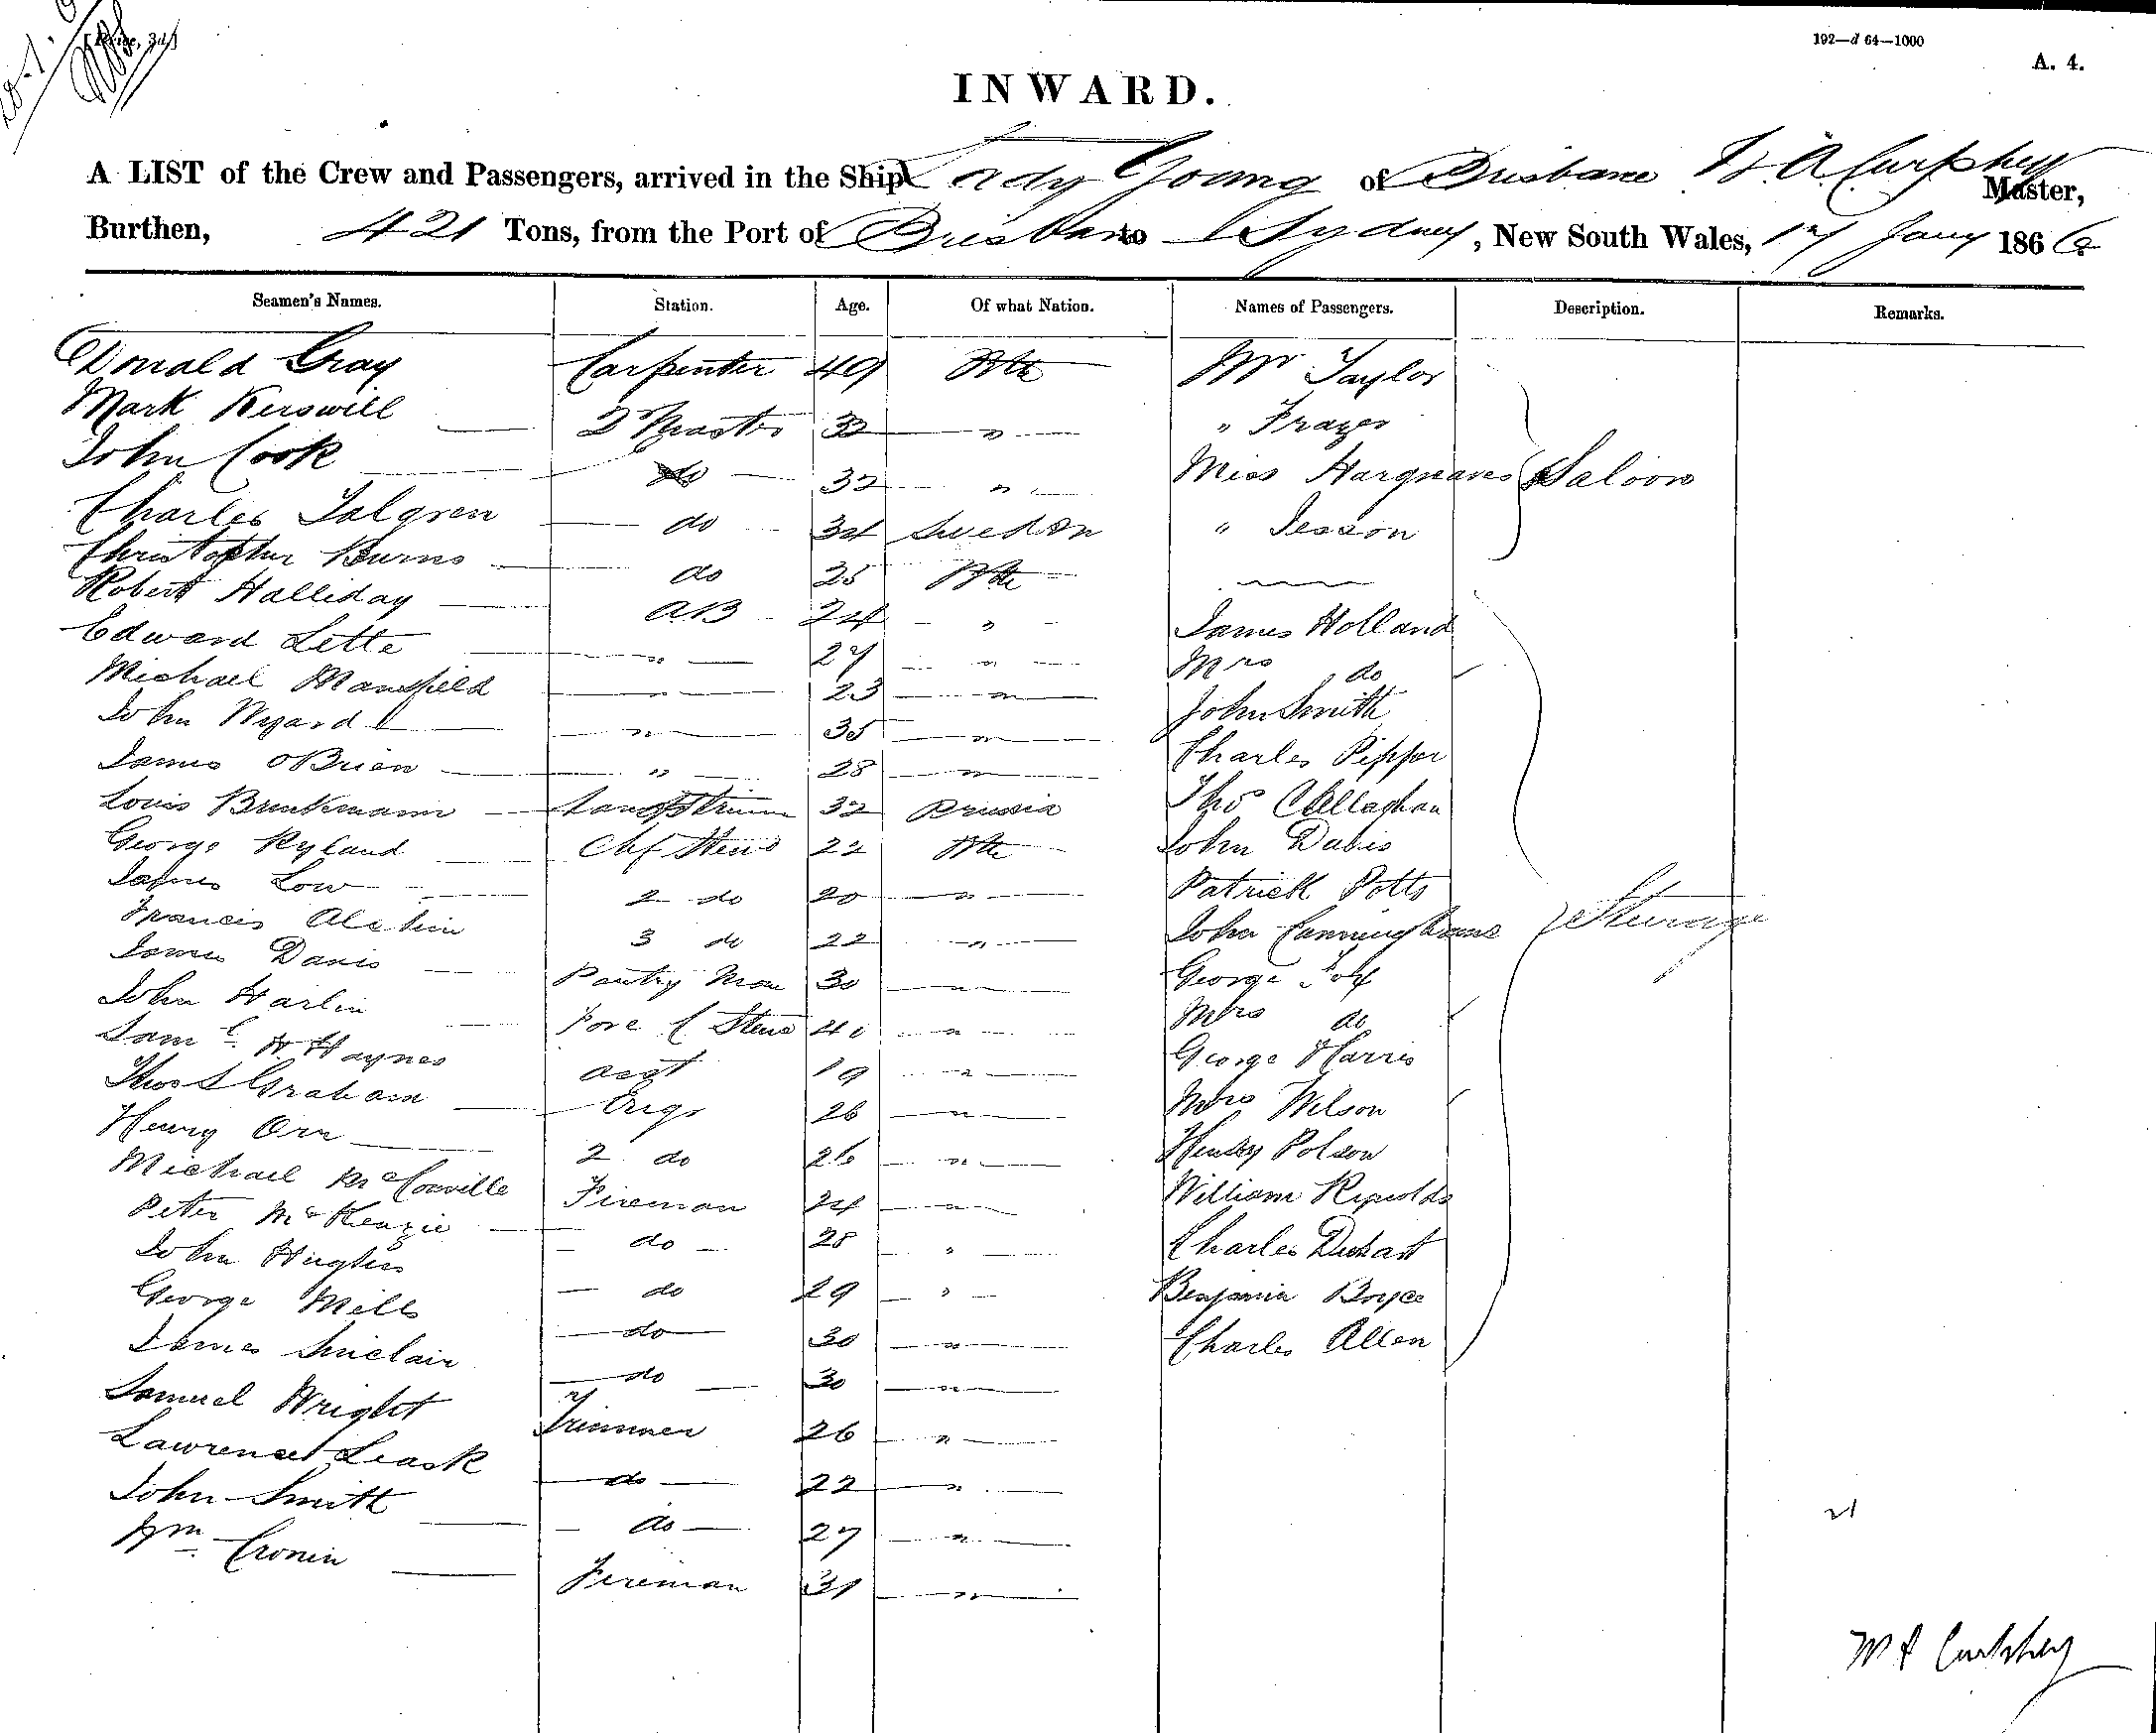 [Price, 3d.]
192—d 64—1000
A. 4.
INWARD.
A LIST of the Crew and Passengers, arrived in the Ship Lady Young of Brisbane W. A. Curphey Master,
Burthen, 421 Tons, from the Port of Brisbane to Sydney, New South Wales, 17 Jany 1866
Seamen's Names. Station. Age. Of what Nation. Names of Passengers. Description. Remarks.
Donald Gray Carpenter 49 Mr Taylor
Mark Kerswill 2 Master 32 " " Frazer
John Cook do 32 " Miss Hargreaves Saloon
Charles Talgren do 34 Sweden " Jesson
Christopher Burns do 25
Robert Halliday AB 24 " James Holland
Edward Lette " 27 " Mrs do
Michael Mansfield " 23 " John Smith
John Wizard " 35 " Charles Pipper
James OBrien " 28 " Thos Callaghan
Louis Brinkmann 32 Prussia John Dabis
George Ryland Chf Stewd 22 Patrick Potts
James Low 2 do 20 " John Cunningham Steerage
Francis 3 do 22 " George Fox
James Davis Pantry Man 30 " Mrs do
John Harlin Fore C Stewd 40 " George Harris
Saml H Haynes asst 19 " Mrs Wilson
Thos S Graham Engr 26 " Henry Polson
Henry Orr 2 do 26 " William Reynolds
Michael McConville Fireman 24 " Charles
Peter McKenzie do 28 " Benjamin Boyce
John Hughes do 29 " Charles Allen
George Mills do 30 "
James Sinclair do 30 "
Samuel Wright Trimmer 26 "
Lawrence Leask do 22 "
John Smith do 27 "
Wm Cronin Fireman 31 "
21
W A Curphey